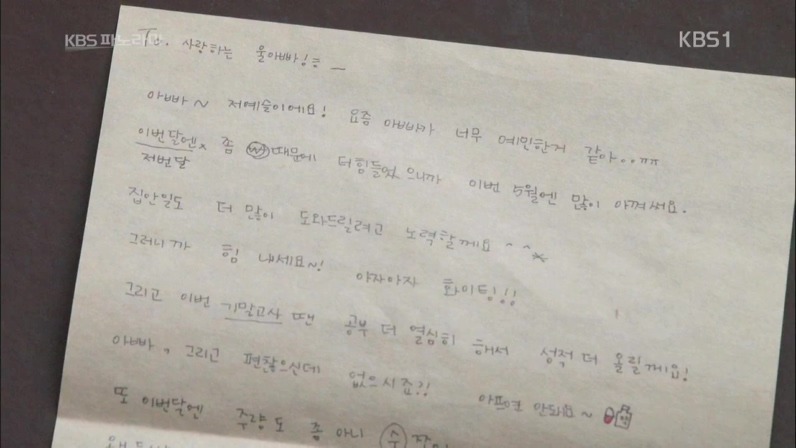 KBS 파노라마
KBS1
To. 사랑하는 울아빠!
아빠~ 저예슬이에요! 요즘 아빠가 너무 예민한거 같아..ㅠㅠ
이번달엔 좀 때문에 더힘들었으니까 이번 5월엔 많이 아껴써요.
저번달
집안일도 더 많이 도와드릴려고 노력할께요^^
그러니까 힘 내세요~! 아자아자 화이팅!!
그리고 이번 기말고사 땐 공부 더 열심히 해서 성적 더 올릴께요!
아빠, 그리고 편찮으신데 없으시죠?! 아프면 안돼요~
또 이번달엔 주량도 좀 아니 술